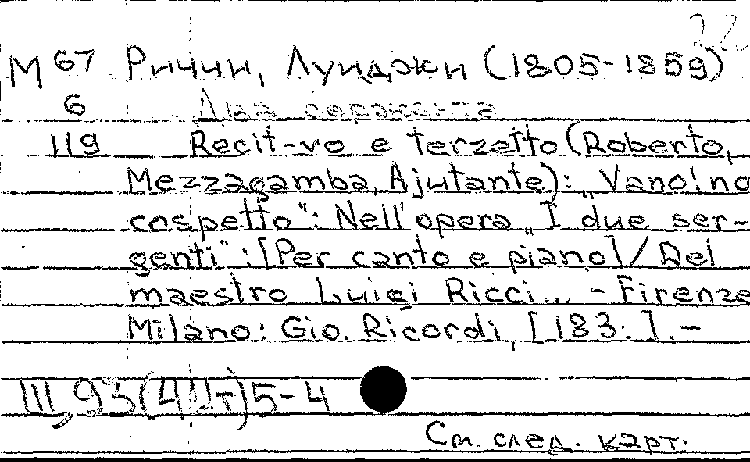 М 67 Ричии, Луиджи (1805-1859)
6 Два сержанта
119 Recit-vo e terzetto (Roberto,
Mezzagamba, Ajutante): „Vano! no
cospetto": Nell'opera „I due ser-
genti": [Per canto e piano] / Del
maestro Luigi Ricci... - Firenze
Milano: Gio. Ricordi, [183.]. -
III,93(44т)5-4
См. след. карт.